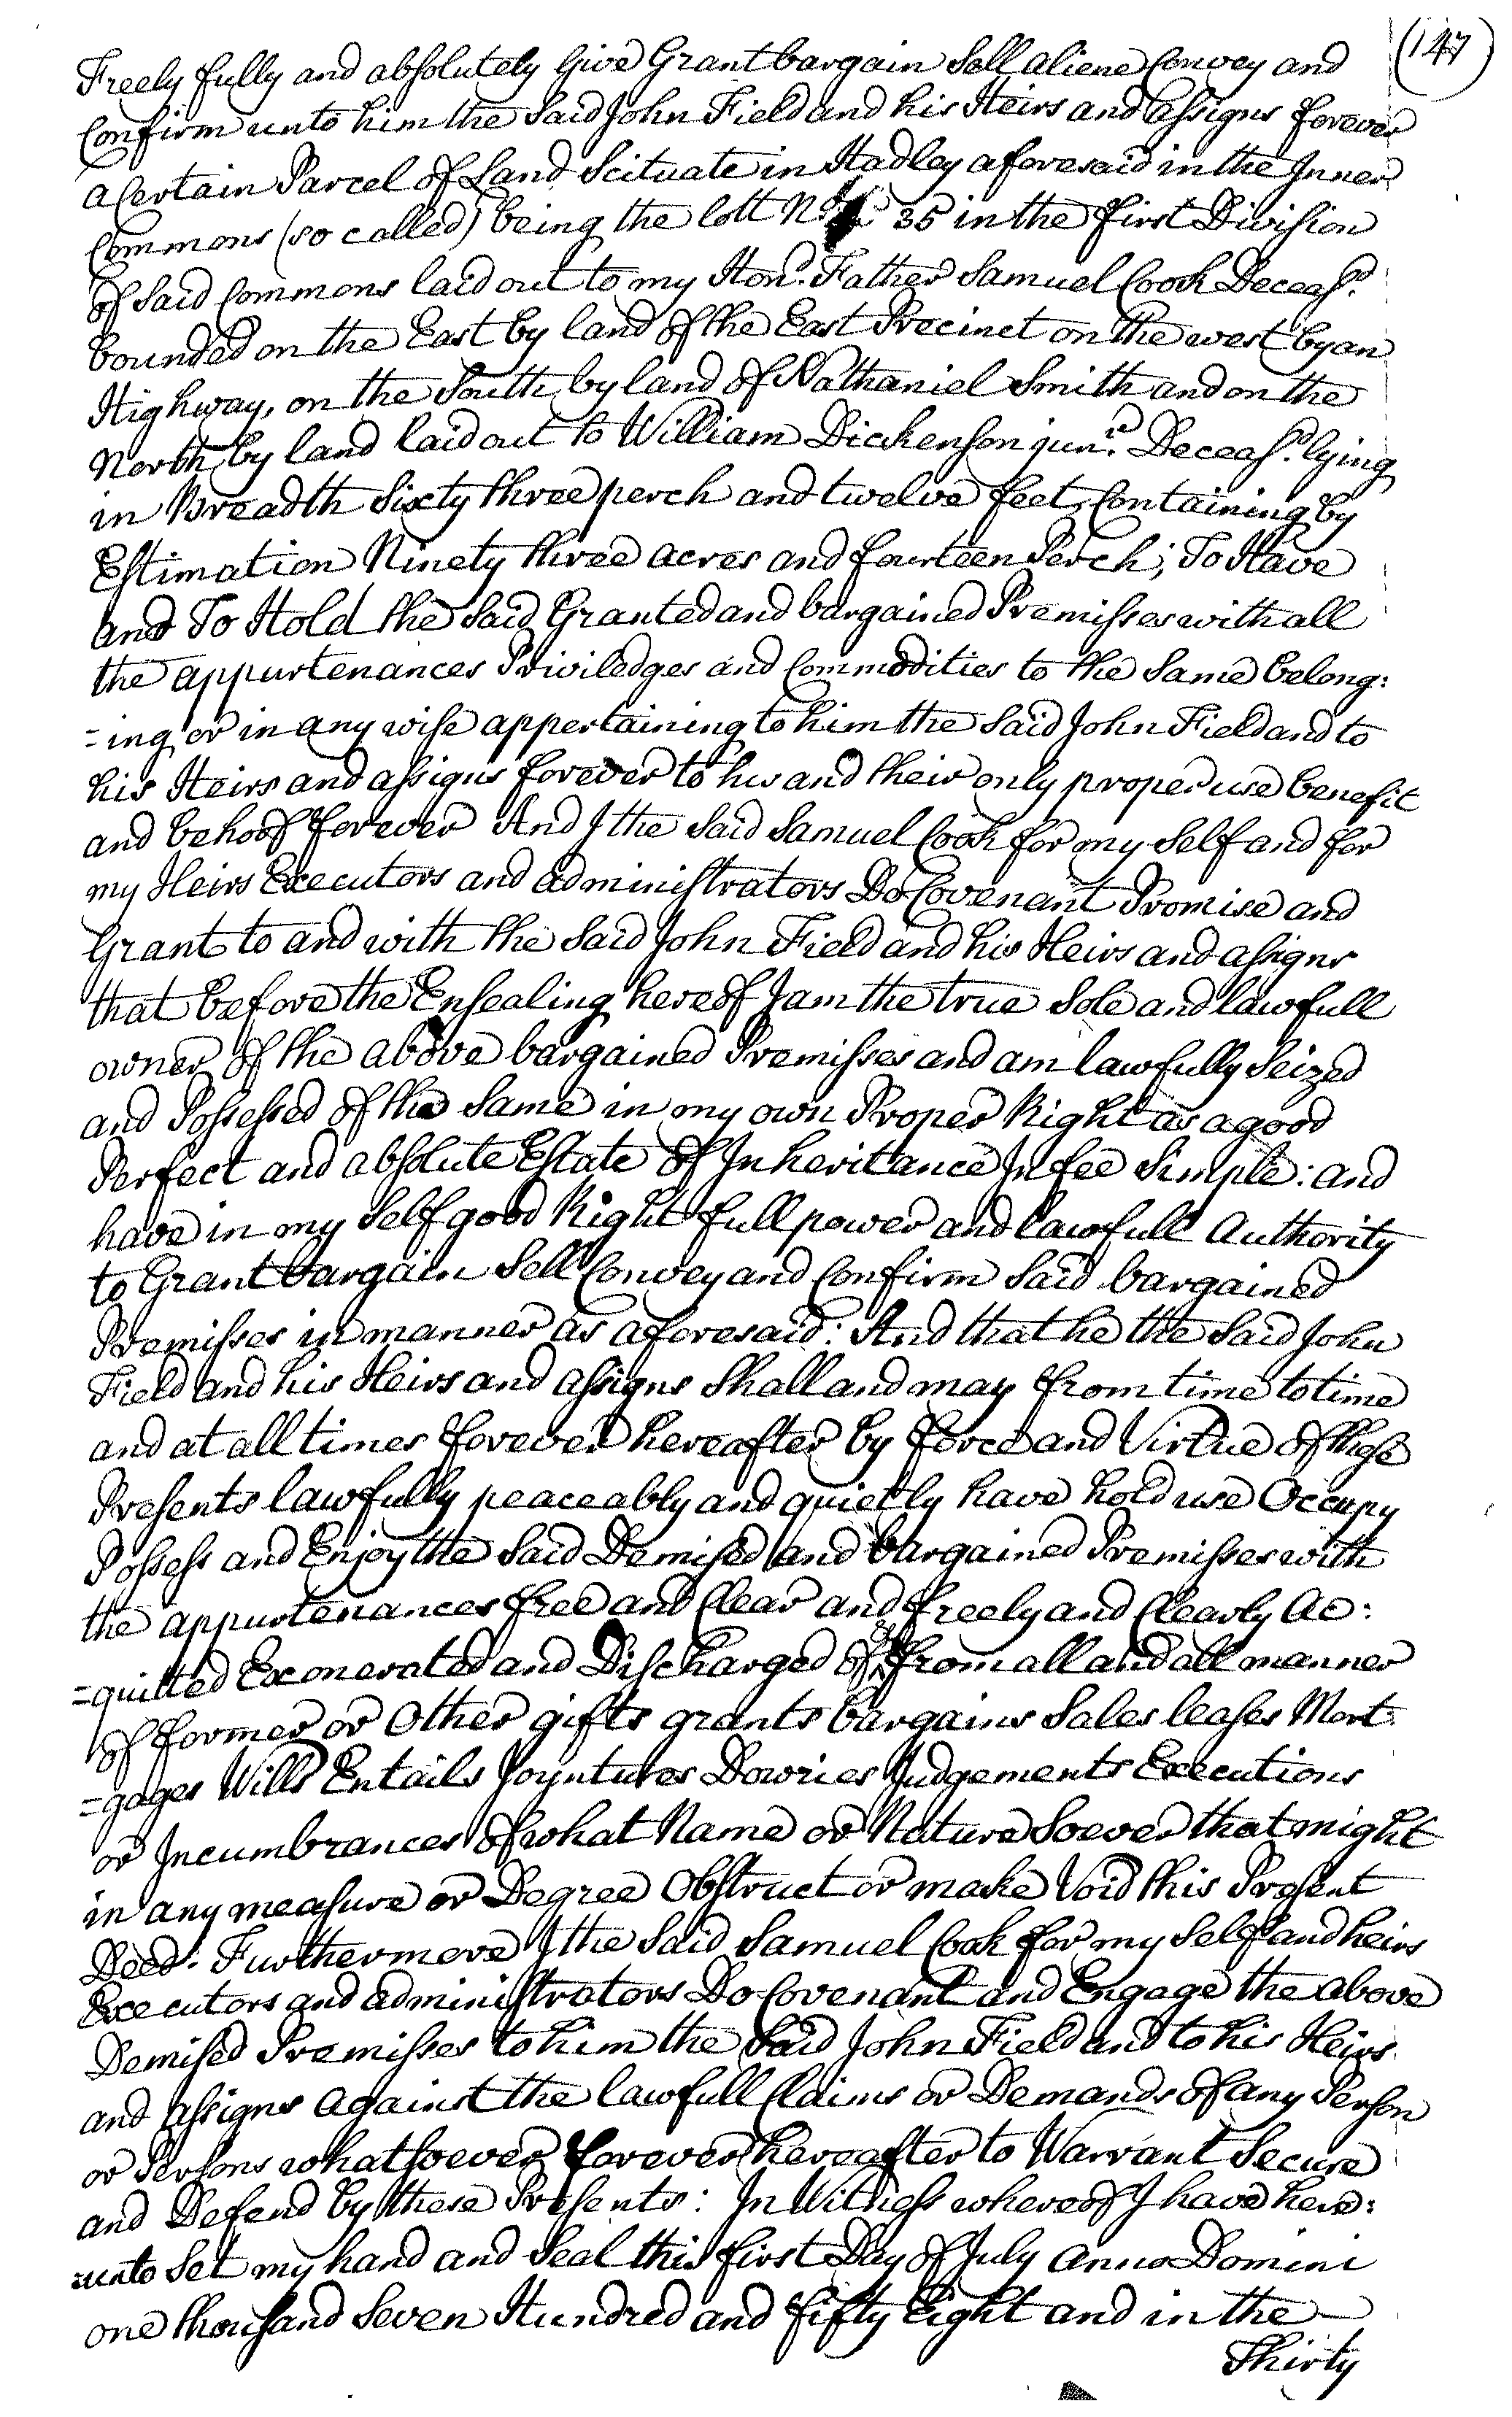 (147)
Freely fully and absolutely Give Grant bargain Sell aliene Convey and
Confirm unto him the Said John Field and his Heirs and Assigns forever
a Certain Parcel of Land Scituate in Hadley aforesaid in the Inner
Commons (so called) being the lott No. 35 in the first Division
of Said Commons laid out to my Hond. Father Samuel Cook Deceasd.
bounded on the East by land of the East Precinct on the west by an
Highway, on the South by land of Nathaniel Smith and on the
North by land laid out to William Dickenson junr. Deceasd. lying
in Breadth Sixty three perch and twelve feet, Containing by
Estimation Ninety three acres and fourteen Perch; To Have
and To Hold the Said Granted and bargained Premisses with all
the appurtenances Priviledges and Commodities to the Same belong:
=ing or in any wise appertaining to him the Said John Field and to
his Heirs and assigns forever to his and their only proper use benefit
and behoof forever And I the Said Samuel Cook for my Self and for
my Heirs Executors and administrators Do Covenant Promise and
Grant to and with the Said John Field and his Heirs and assigns
that before the Ensealing hereof I am the true Sole and lawfull
owner of the above bargained Premisses and am lawfully Seized
and Possessed of the Same in my own Proper Right as a good
Perfect and absolute Estate of Inheritance In fee Simple: and
have in my Self good Right full power and lawfull Authority
to Grant bargain Sell Convey and Confirm Said bargained
Premisses in manner as aforesaid: And that he the Said John
Field and his Heirs and assigns Shall and may from time to time
and at all times forever hereafter by force and Virtue of these
Presents lawfully peaceably and quietly have hold use Occupy
Possess and Enjoy the Said Demised and bargained Premisses with
the appurtenances free and Clear and freely and Clearly Ac:
=quitted Exonerated and Discharged of from all and all manner
of former or Other gifts grants bargains Sales leases Mort:
=gages Wills Entails Joyntures Dowries Judgements Executions
or Incumbrances of what Name or Nature Soever that might
in any measure or Degree Obstruct or make Void this Present
Deed: Furthermore I the Said Samuel Cook for my Self and heirs
Executors and administrators Do Covenant and Engage the above
Demised Premisses to him the Said John Field and to his Heirs
and assigns against the lawfull Claims or Demands of any Person
or Persons whatsoever forever hereafter to Warrant Secure
and Defend by these Presents: In Witness whereof I have here:
=unto Set my hand and Seal this first Day of July Anno Domini
one thousand Seven Hundred and fifty Eight and in the
Thirty